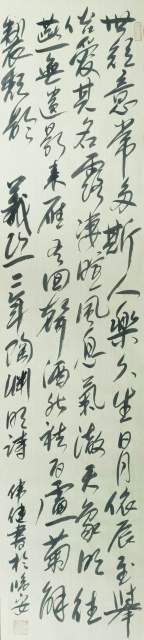 世短意常多斯人樂久生日月依辰至舉
俗愛其名露淒暄風息氣澈天象明往
燕無遺影來雁有回聲酒能祛百慮菊解
製頹齡 義熙二年陶渊明詩 偉健書於臨安